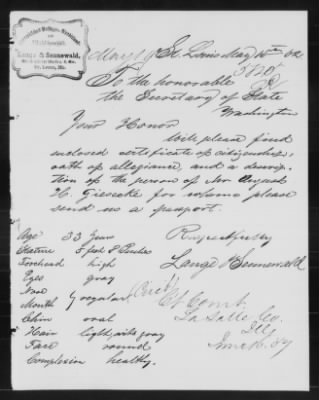 Lange & Sennewald,
St. Louis, Mo.
St. Louis May 10th 82
To the honorable
the Secretary of State
Washington
Your Honor
Will please find
enclosed certificate of citizenship,
oath of allegiance, and a descrip-
tion of the person of Mr August
H. Giesecke for whome please
send us a pasport.
Respectfully
Lange & Sennewald
Age 33 Years
Stature 5 feet 8 Inches
Forehead high
Eyes gray
Nose
Mouth } regular
Chin oval
Hair light, with gray
Face round
Complexion healthy.
(Cirt)
Ct Court
La Salle Co.
Ill